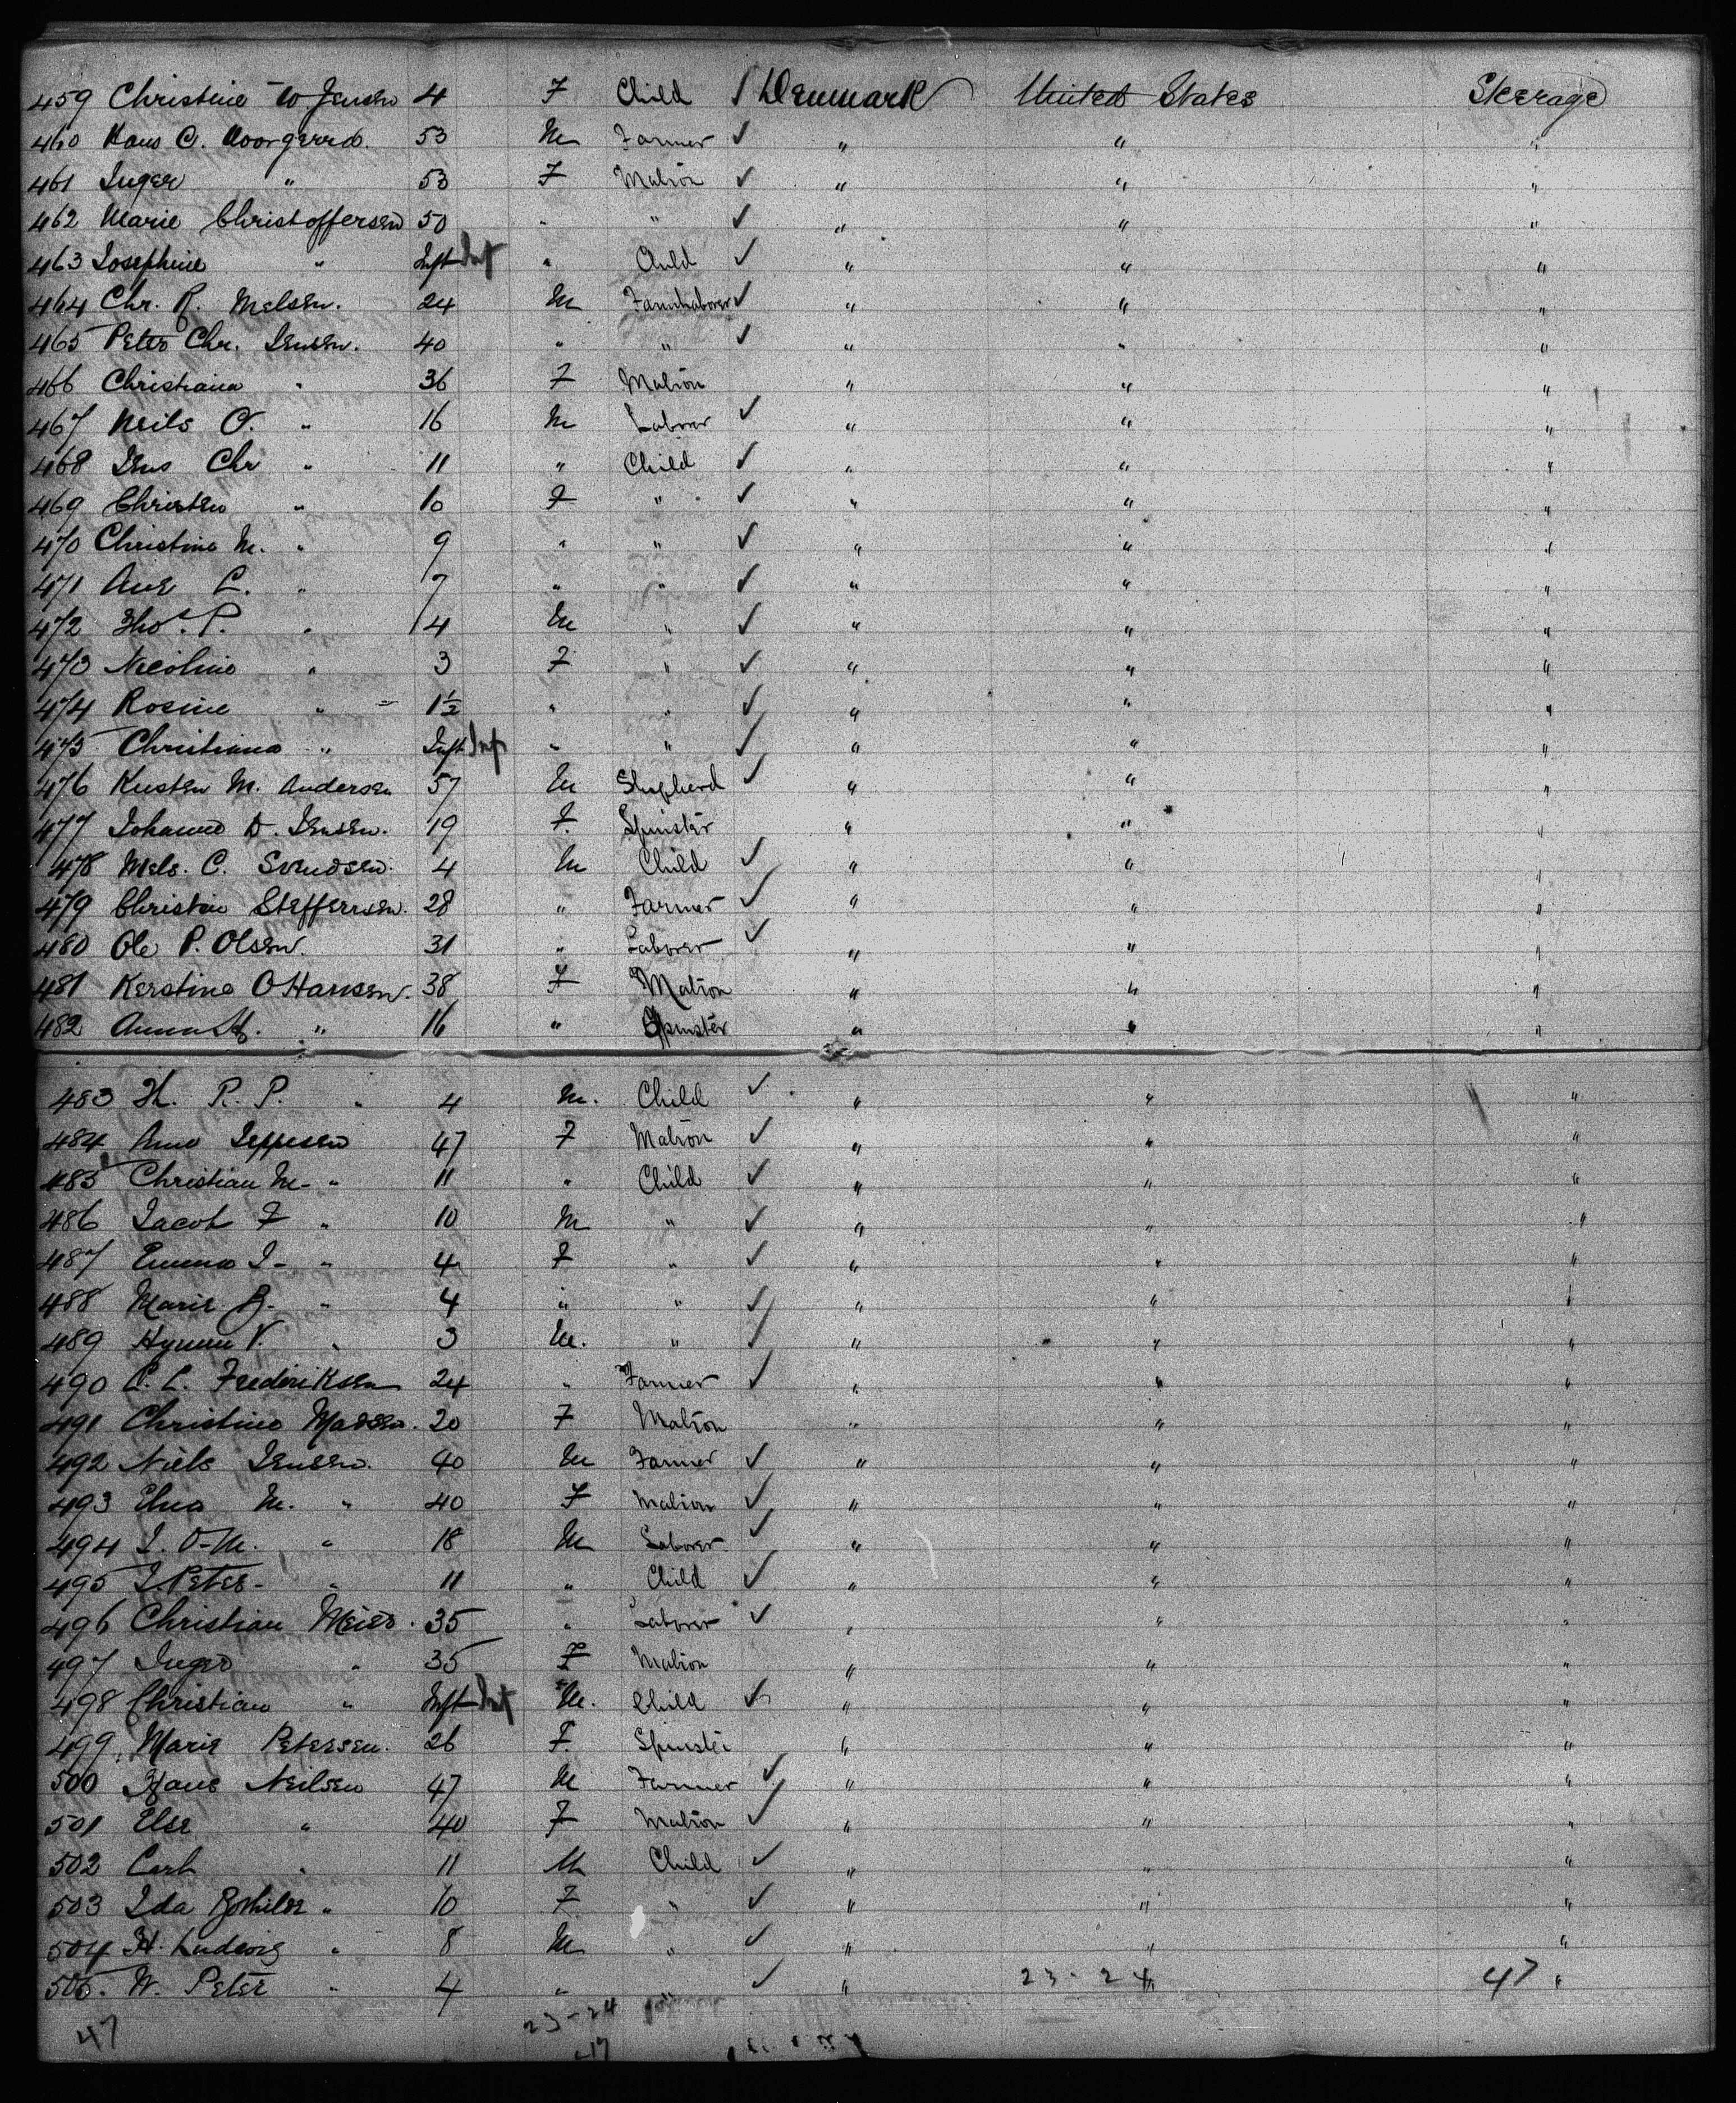 459 Christine W Jensen 4 F Child ✓ Denmark United States Steerage
460 Hans C. 53 M Farmer ✓ " " "
461 Inger " 53 F Matron ✓ " " "
462 Marie Christoffersen 50 " " ✓ " " "
463 Josephine " Inft Inf " Child ✓ " " "
464 Chr. R. Nielsen. 24 M Farmlaborer ✓ " " "
465 Peter Chr. Jensen. 40 " " ✓ " " "
466 Christiana " 36 F Matron " " "
467 Neils C. " 16 M Laborer ✓ " " "
468 Jens Chr " 11 " Child ✓ " " "
469 Christen " 10 F " ✓ " " "
470 Christine M. " 9 " " ✓ " " "
471 Ane C. " 7 " " ✓ " " "
472 Thos. P. " 4 M " ✓ " " "
473 Nicoline " 3 F " ✓ " " "
474 Rosine " 1½ " " ✓ " " "
475 Christiana " Inft Inf " " ✓ " " "
476 Kirsten M. Andersen 57 M Shepherd ✓ " " "
477 Johanne D. Jensen. 19 F. Spinster " " "
478 Niels. C. Svendsen. 4 M Child ✓ " " "
479 Christen Steffensen. 28 " Farmer ✓ " " "
480 Ole P. Olsen. 31 " Laborer ✓ " " "
481 Kerstine O Hansen. 38 F Matron " " "
482 Anna " 16 " Spinster " " "
483 H. P. P. " 4 M. Child ✓ " " "
484 Ane Jeppesen 47 F Matron ✓ " " "
485 Christian M- " 11 " Child ✓ " " "
486 Jacob F " 10 M " ✓ " " "
487 Emma I- " 4 F " ✓ " " "
488 Marie B. " 4 " " ✓ " " "
489 V. " 3 M. " ✓ " " "
490 C. C. Frederiksen 24 " Farmer ✓ " " "
491 Christine Madsen. 20 F Matron " " "
492 Niels Jensen. 40 M Farmer ✓ " " "
493 M. " 40 F Matron ✓ " " "
494 J. O-M. " 18 M Laborer ✓ " " "
495 J. Peter- " 11 " Child ✓ " " "
496 Christian . 35 " Laborer ✓ " " "
497 Inger " 35 F Matron " " "
498 Christian " Inft Inf M. Child ✓ " " "
499. Marie Petersen. 26 F. Spinster " " "
500 Hans Neilsen 47 M Farmer ✓ " " "
501 Else " 40 F Matron ✓ " " "
502 Carl " 11 M Child ✓ " " "
503 Ida " 10 F " ✓ " " "
504 H. Ludwig " 8 M " ✓ " " "
505. W. Peter " 4 " " ✓ " 23-24 " 47 "
47 23-24
47